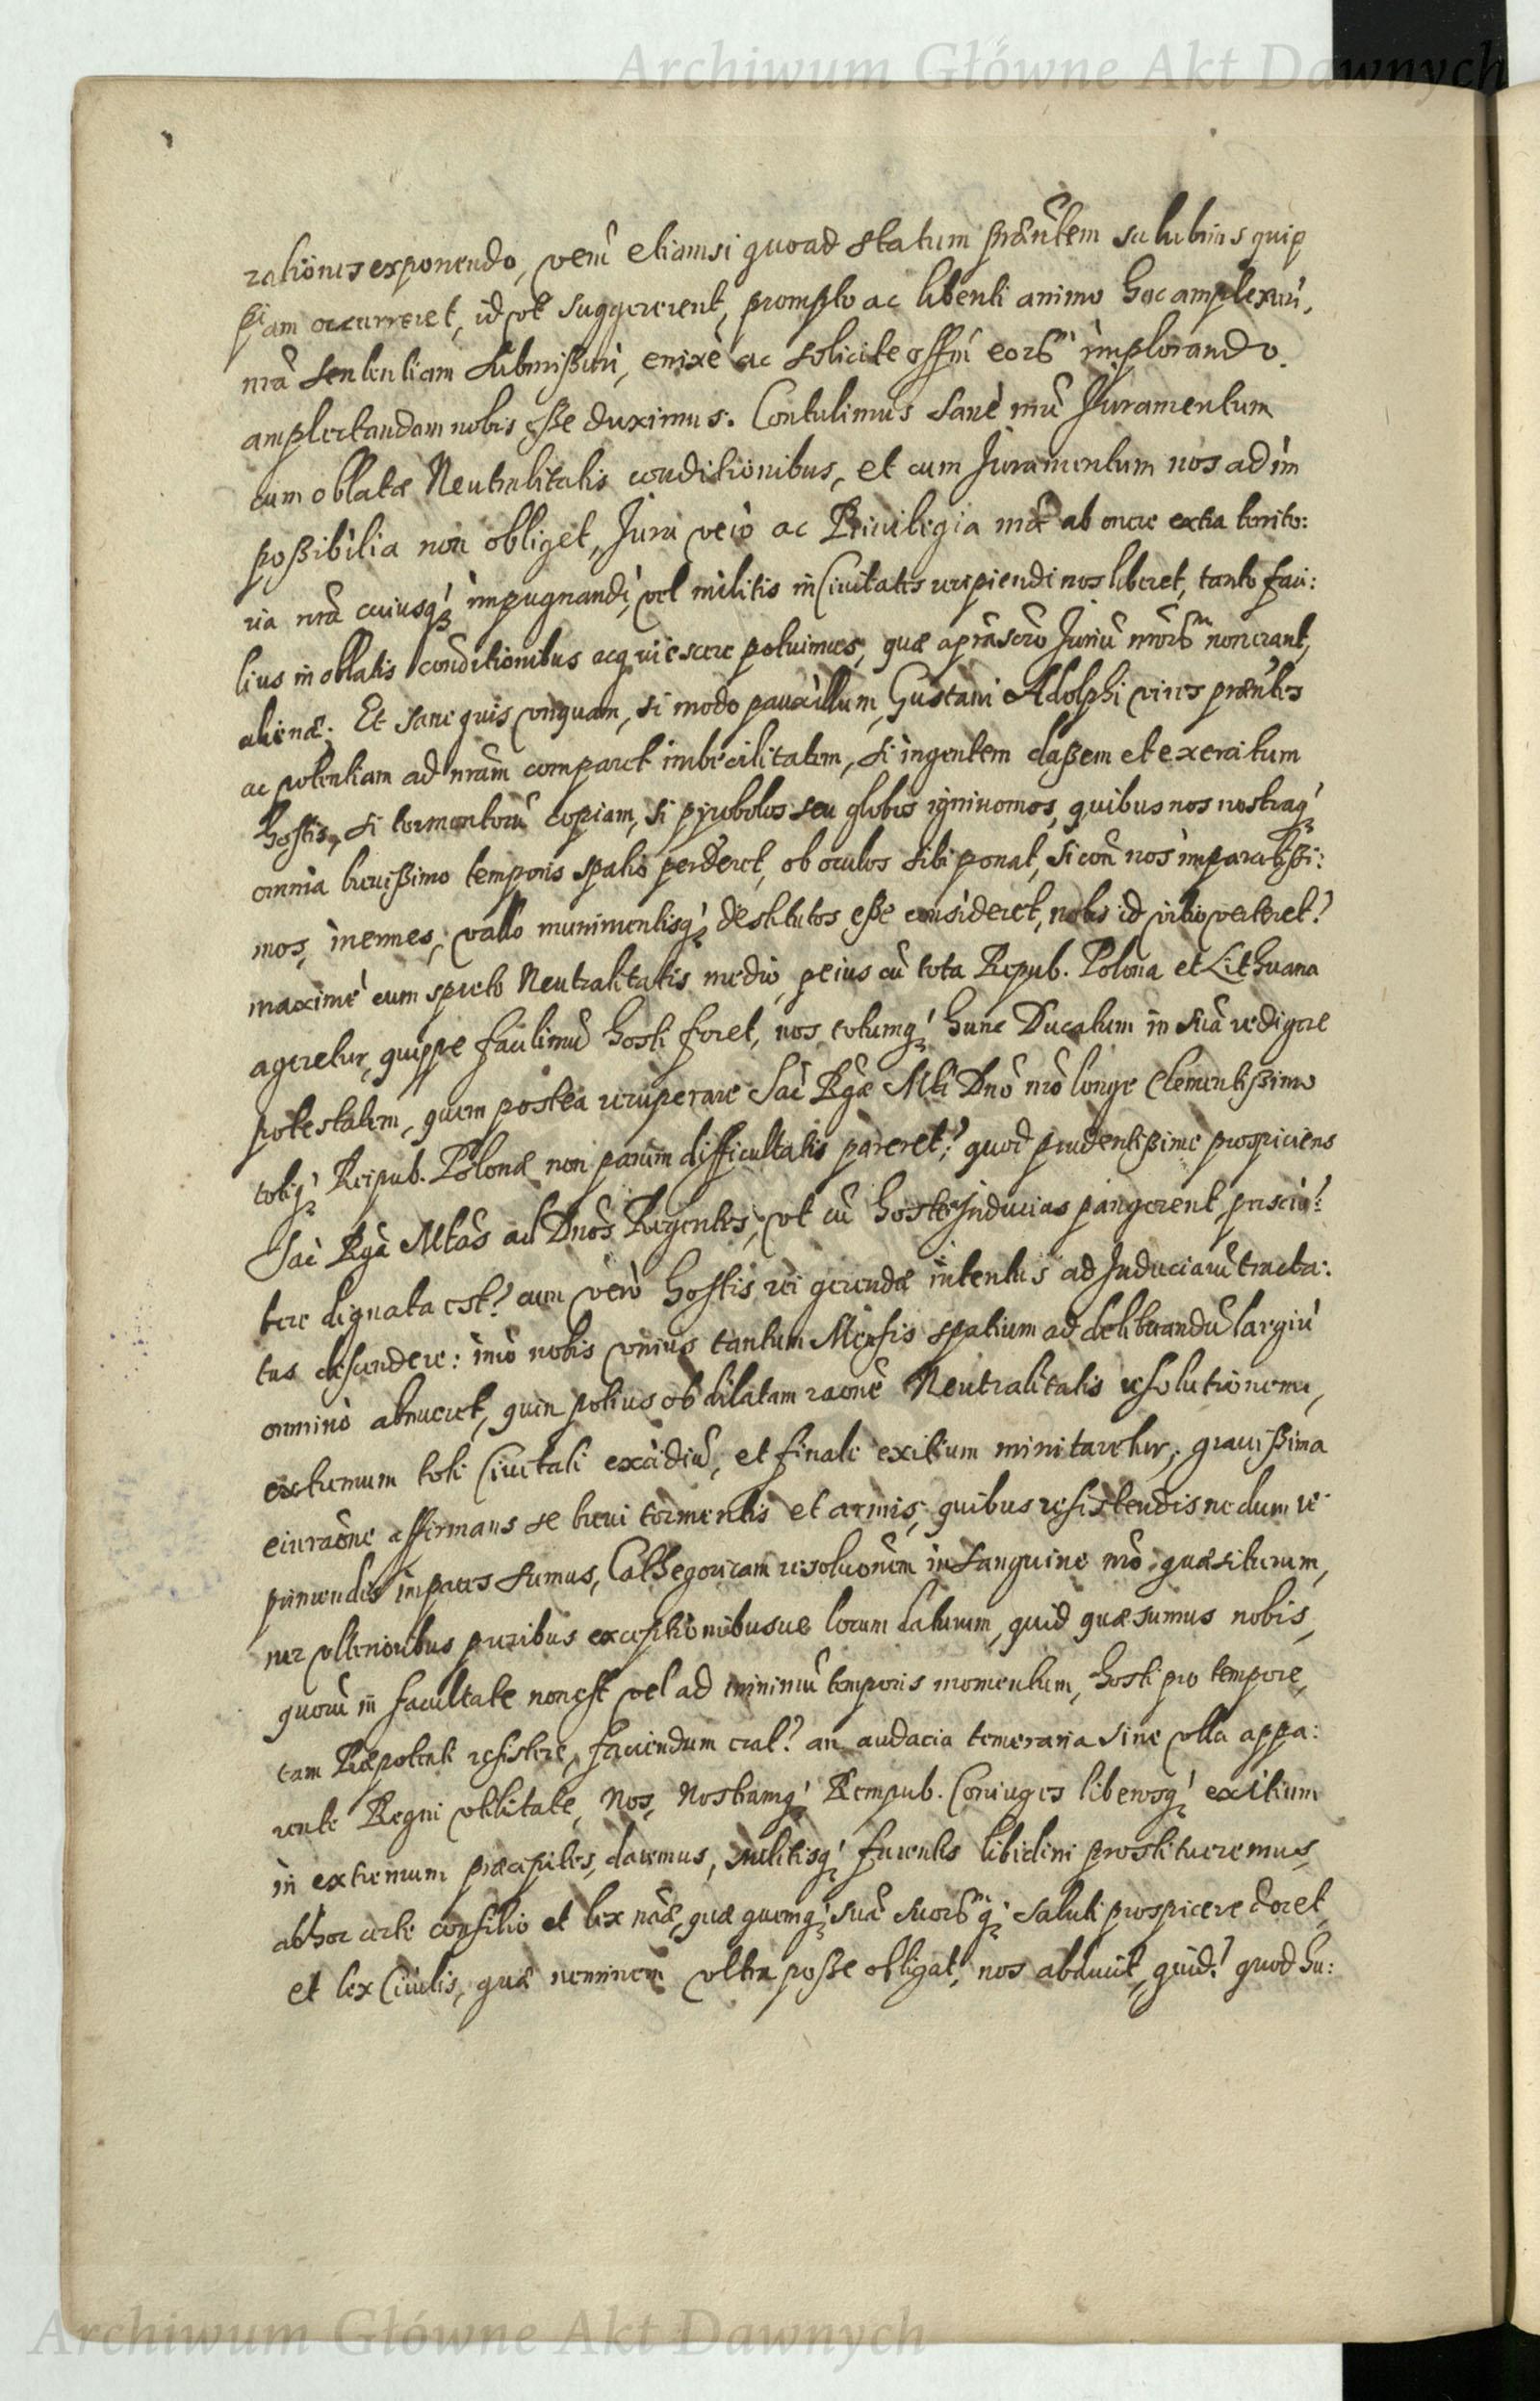 Archiwum Główne Akt Dawnych
rationes exponendo, verũ etiamsi quoad statum præñtem salubrius quip
piam occurreret, id vt suggererent, prompto ac libenti animo hoc amplexuri,
nrã sententiam submissuri, enixè ac solicite offm̃ eorũ implorando.
amplectandam nobis eße duximus. Contulimus sanè nrũ Juramentum
cum oblatæ Neutralitatis conditionibus, et cum Juramentum nos ad im
poßibilia non obliget, Jura verò ac Priuilegia nrã ab onere extra territo:
ria nrã cuiusq́ impugnandi, vel militis in Ciuitates recipiendi nos liberet, tanto faci:
lius in oblatis conditionibus acquiescere potuimus, quæ a præscro Juriũ nrorũ non erant,
alienæ. Et sane quis vnquam, si modo pauxillum, Gustaui Adolphi vires præñtes
ac potentiam ad nram̃ comparet imbecilitatem, si ingentem claßem et exercitum
hostis, si tormentorũ copiam, si pyrobolos seu globos igniuomos, quibus nos nostraq́
omnia breuißimo temporis spatio perderet, ob oculos sibi ponat, si con̄ nos imparatißi:
mos, inermes, vallo munimentisq́ destitutos eße consideret, nobis id vitio verteret?
maximè cum spreto Neutralitatis medio, peius cũ tota Repub. Polona et Lithuana
ageretur, quippe facilimũ hosti foret, nos totumq́ hunc Ducatum in suã redigere
potestatem, quem postea recuperare Sac̃ Rgæ Mti Dnõ nrõ longe Clementißimo
totiq́ Reipub. Polonæ non parum difficultatis pareret? quod prudentißime prospiciens
Sac̃ Rga Mtas̃ ad Dnos̃ Regentes, vt cũ hoste Inducias pangerent, rescri:
bere dignata est? cum verò hostis rei gerendæ intentus ad Induciarũ tracta:
tus descendere: imò nobis vnius tantum Mensis spatium ad deliberandũ largiri
omninò abnueret, quin potius ob dilatam raonẽ Neutralitatis resolutionem,
extremum toti Ciuitati excidiũ, et finale exitium minitaretur, grauißima
eiuraõne affirmans se breui tormentis et armis, quibus resistendis nedum re
primendis impares sumus, Cathegoricam resoluonẽm in sanguine nrõ quæsiturum,
nec vlterioribus precibus exceptionibusue locum daturum, quid quæsumus nobis,
quorũ in facultate non est vel ad minimũ temporis momentum, hosti pro tempore,
tam Præpotenti resistere, faciendum erat? an audacia temeraria sine vlla appa:
rente Regni vtilitate, Nos, Nostramq́ Rempub. Coniuges liberosq́ exitium
in extremum præcipites daremus, militisq́ furentis libidini prostitueremus,
ab hoc certe consilio et lex nãæ, quæ quemq́ suæ suorũq́ saluti prospicere docet,
et lex Ciuilis, quæ neminem vltra poße obligat, nos abduxit, quid? quod hu:
Archiwum Główne Akt Dawnych